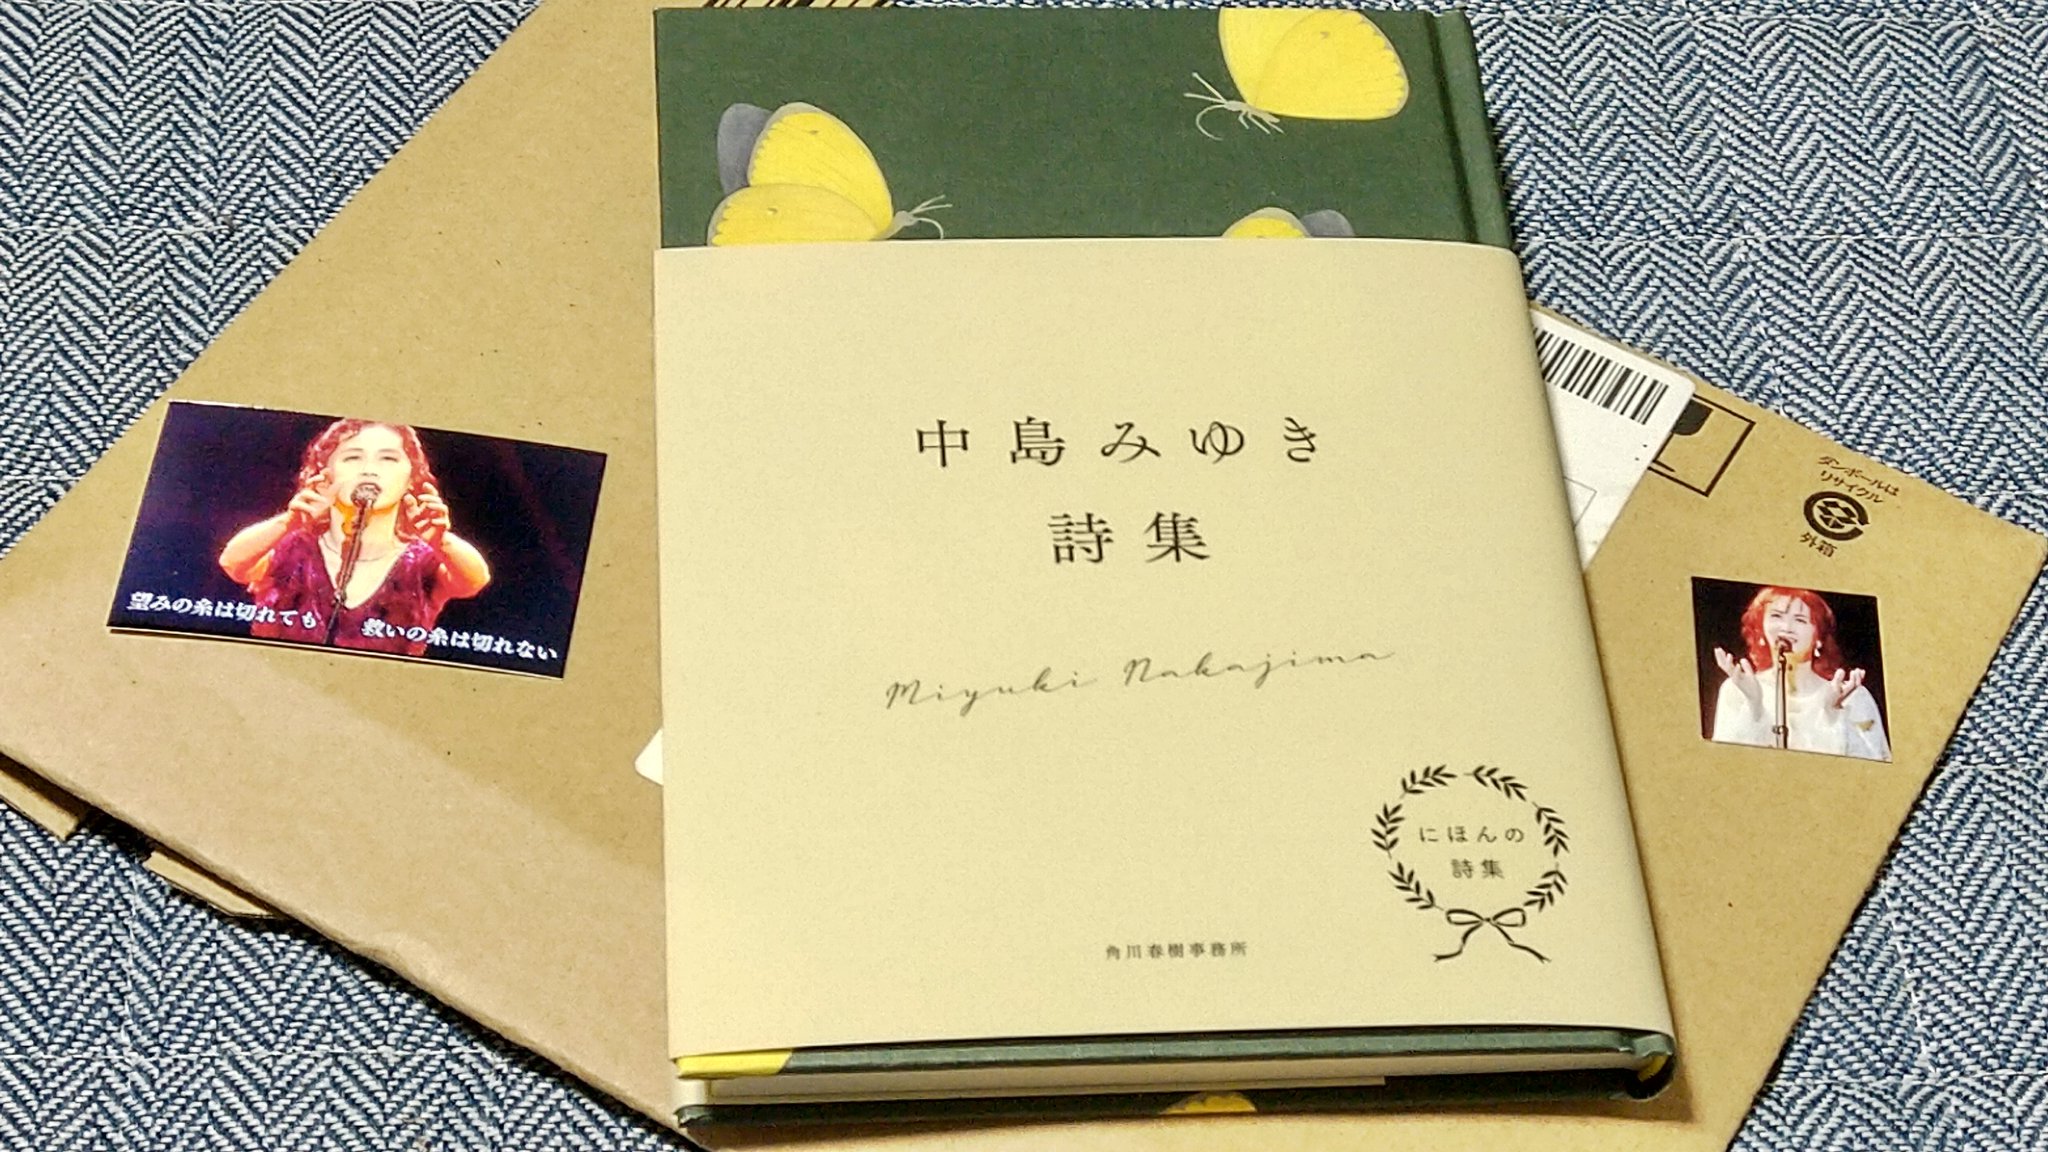 中島みゆき
詩集
Miyuki Nakajima
にほんの
詩集
角川春樹事務所
望みの糸は切れても
救いの糸は切れない
ダンボールは
リサイクル
外箱